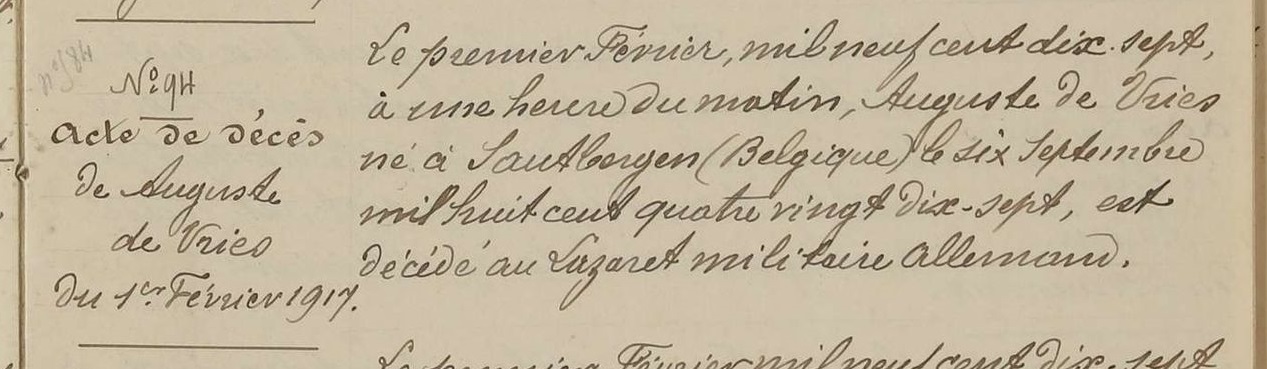 N° 94
acte de décès
de Auguste
de Vries
du 1er Février 1917.
Le premier Février, mil neuf cent dix-sept,
à une heure du matin, Auguste de Vries
né à Santbergen (Belgique) le six Septembre
mil huit cent quatre vingt dix-sept, est
décédé au Lazaret militaire allemand.
Le premier Février mil neuf cent dix-sept